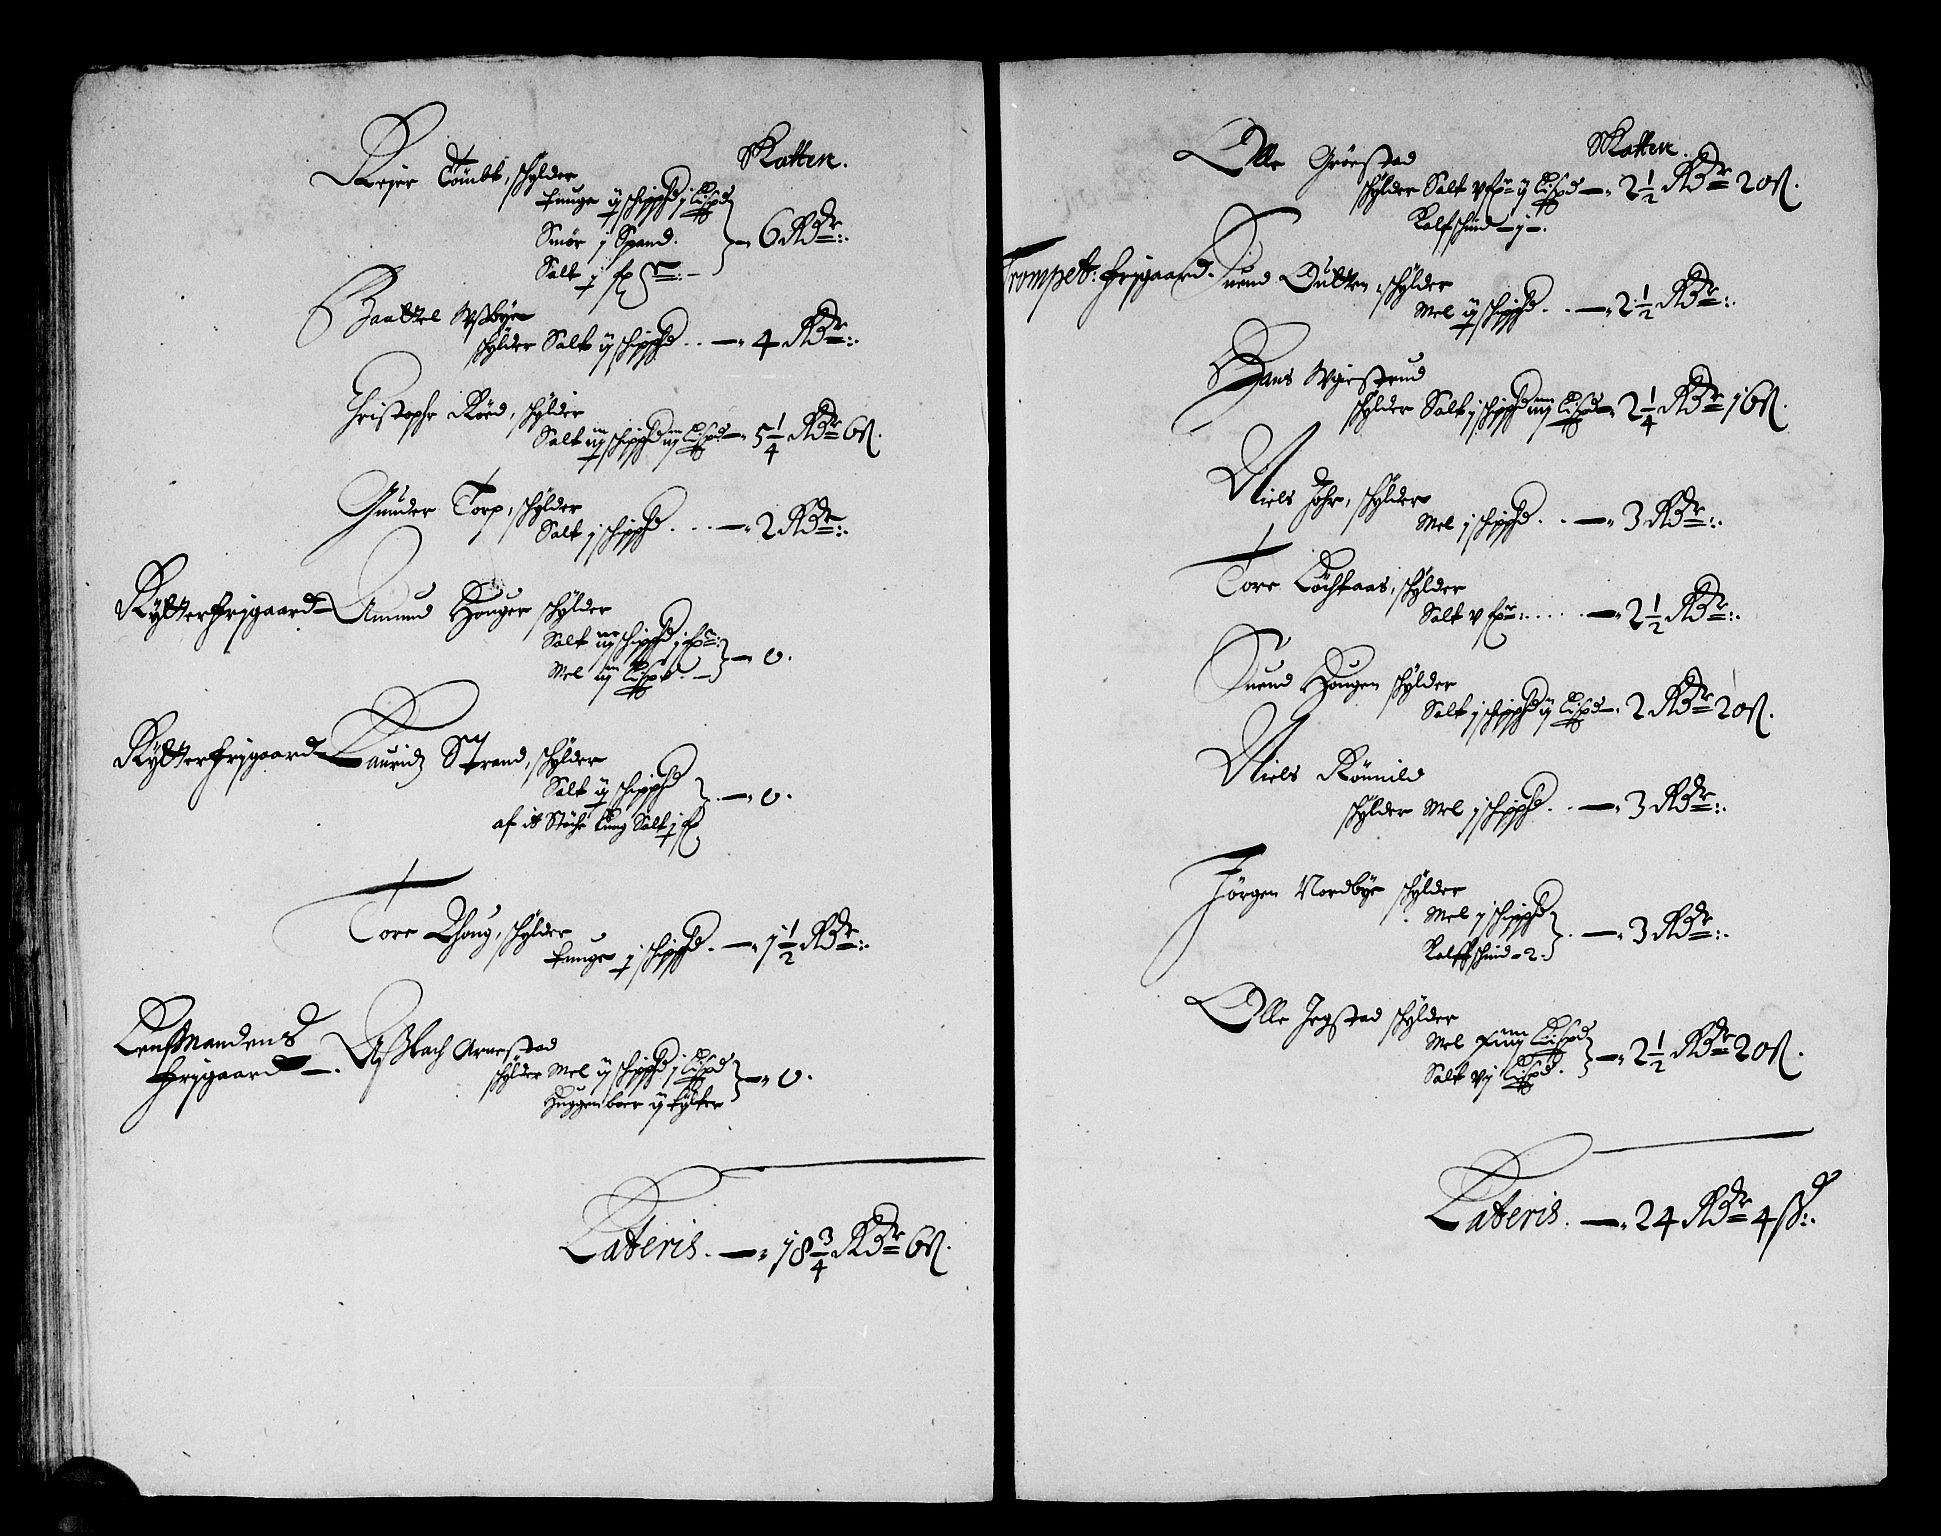 Skatten.
Reier Tombt, schylder
Tunge ij schippd j Lispd
Smør j Spand.
Salt j fr
6 Rdr:
Baattel
schylder Salt ij schippd . . — 4 Rdr:
Christopher Røed, schylder
Salt iij schippd iij Lispd — 5 1/4 Rdr 6 ß.
Gunder Torp, schylder
Salt j schippd . . . — 2 Rdr:
Rytterfrijgaard — Amund Houger schylder
Salt iij schippd j fr:
Mel iij Lispd . — 0.
Rytterfrijgaard — Lauridz Strand, schylder
Salt ij schippd . — 0.
af it Støche Eng Salt j fr
Tore Houg, schylder
Tunge j schippd . — 1 1/2 Rdr:
Lensmandens
frijgaard — . Aslach Arnestad
schylder Mel ij schippd j Lispd
Huggenboer ij tylter — 0.
Lateris. — 18 3/4 Rdr 6 ß.
Skatten.
Olle Grøestad
schylder Salt v fr ij Lispd — 2 1/2 Rdr 20 ß.
Kalfschind — j — .
Trompet: frijgaard. Suend Hutten, schylder
Mel ij schippd . . — 2 1/2 Rdr:
Hans
schylder Salt j schippd iiij Lispd — 2 1/4 Rdr 16 ß.
Niels Johr, schylder
Mel j schippd . . — 3 Rdr:
Tore Løchaas, schylder
Salt v fr: . . . . . — 2 1/2 Rdr:
Suend Hougen schylder
Salt j schippd ij Lispd — 2 Rdr 20 ß.
Niels Rømnild
schylder Mel j schippd . . — 3 Rdr:
Jørgen Nordbye schylder
Mel j schippd
Kalffschind - 2. — 3 Rdr:
Olle Jegstad schylder
Mel Lispd
Salt vj Lispd. — 2 1/2 Rdr 20 ß.
Lateris. — 24 Rdr 4 ß: